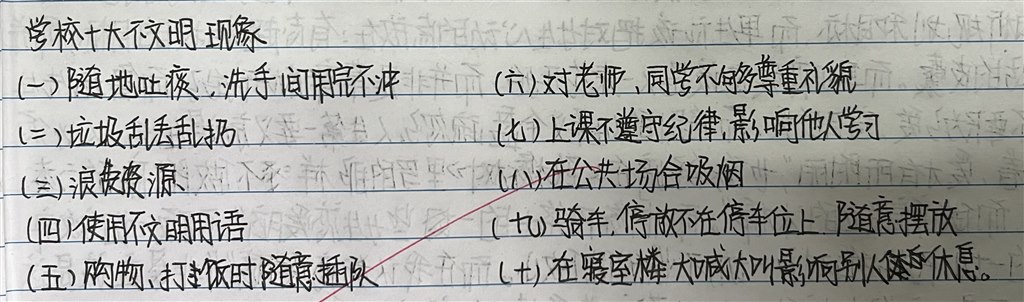 学校十大不文明现象
(一)随地吐痰、洗手间用完不冲
(二)垃圾乱丢乱扔
(三)浪费资源
(四)使用不文明用语
(五)购物、打饭时随意插队
(六)对老师、同学不够尊重礼貌
(七)上课不遵守纪律,影响他人学习
(八)在公共场合吸烟
(九)骑车,停放不在停车位上 随意摆放
(十)在寝室楼大喊大叫影响别人休息。